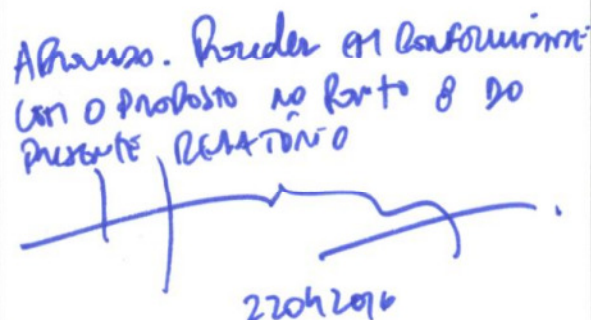 Aprovado. Proceder em conformidade
com o proposto no Ponto 8 do
presente RELATÓRIO
22042016